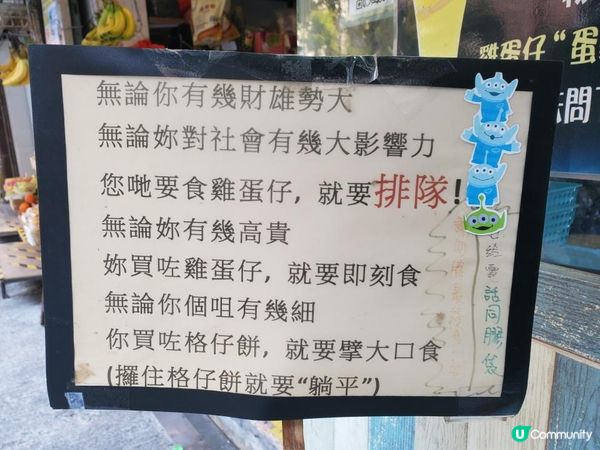 無論你有幾財雄勢大
無論妳對社會有幾大影響力
您哋要食雞蛋仔, 就要排隊!
無論妳有幾高貴
妳買咗雞蛋仔, 就要即刻食
無論你個咀有幾細
你買咗格仔餅, 就要擘大口食
(攞住格仔餅就要“躺平”)
話同膠袋
雞蛋仔“蛋
問
U Community